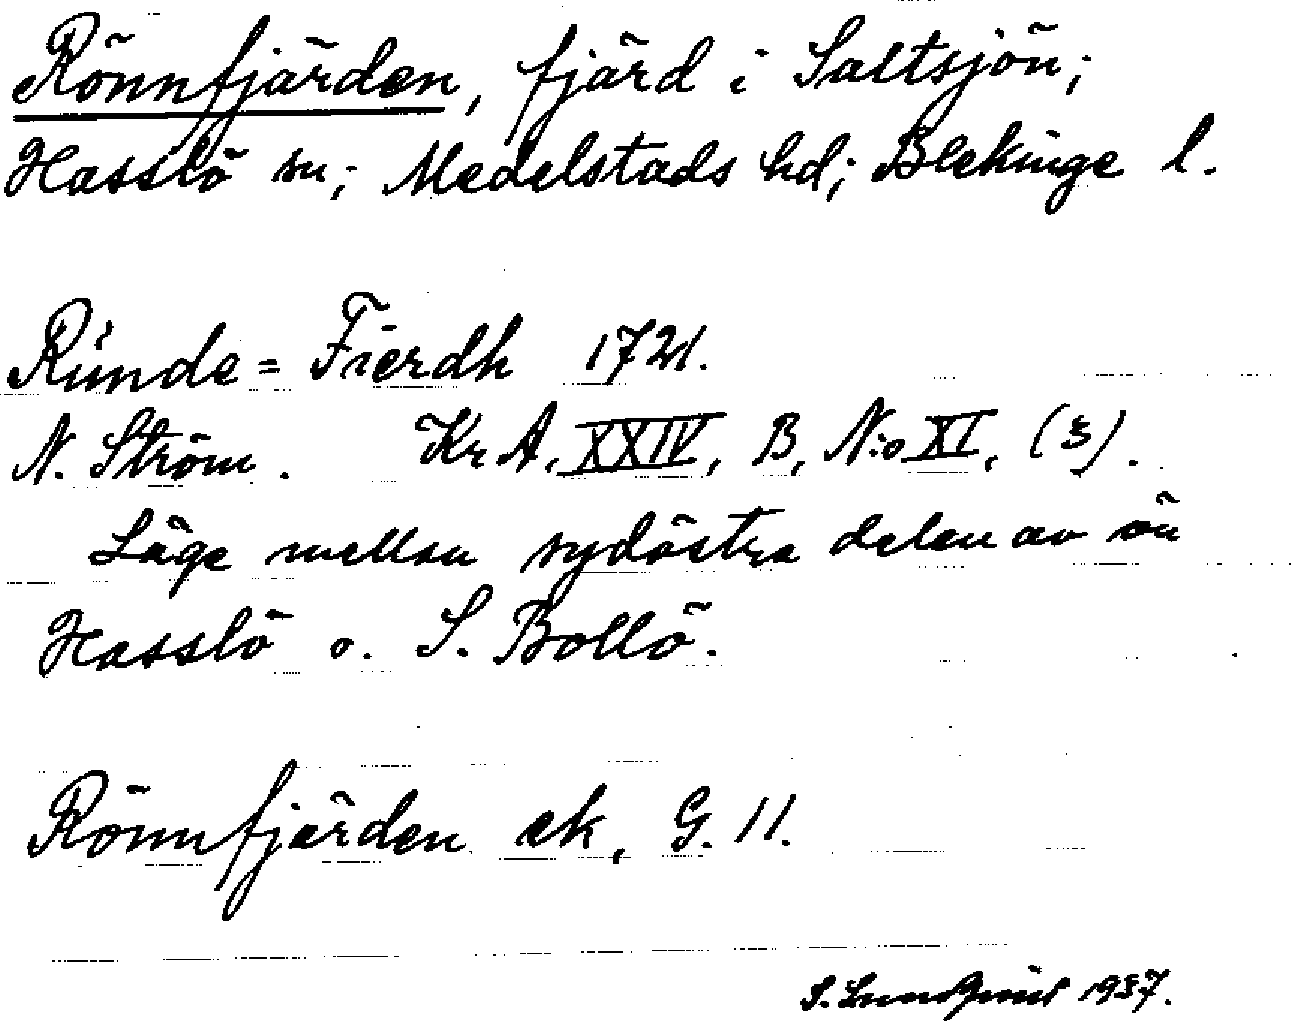 Rönnfjärden, fjärd i Saltsjön;
Hasslö sn; Medelstads hd; Blekinge l.
Rúnde = Fierdh 1721.
N. Ström. Kr A, XXIV, B, N:o XI, (3).
Läge mellan sydöstra delen av ön
Hasslö o. S. Bollö.
Rönnfjärden ek, G. 11.
S. Lundquist 1937.